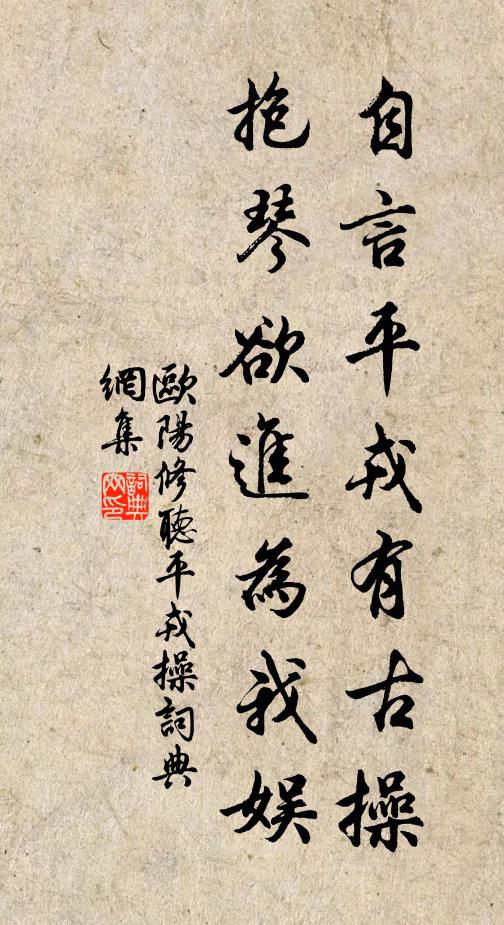 自言平戎有古操
抱琴欲進為我娛
歐陽修聽平戎操詞典
網集
詞典網印